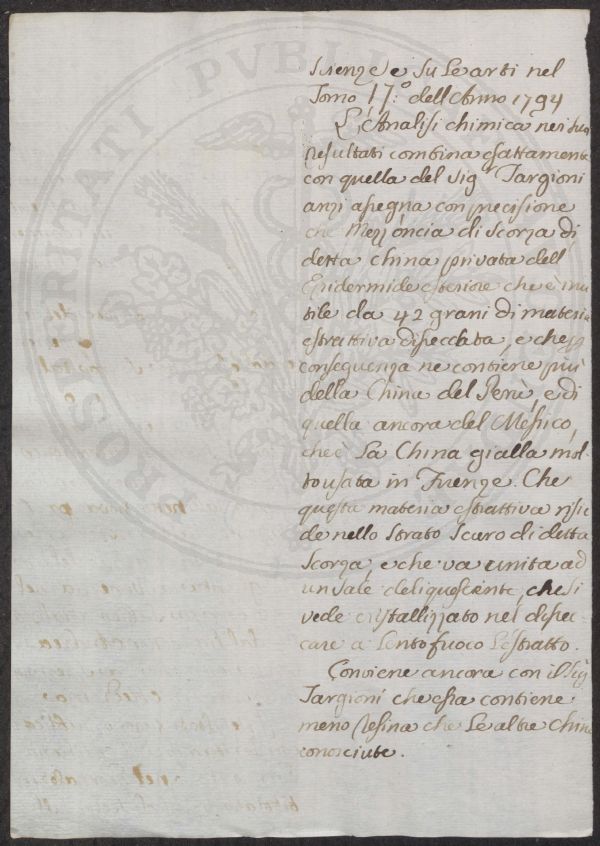 Scienze e Su Le arti nel
Tomo 17:° dell'Anno 1794
L'Analisi chimica nei suoi
resultati combina esattamente
con quella del Sig.r Targioni
anzi assegna con precisione
che Mezz'oncia di Scorza di
detta China privata dell'
Epidermide esteriore che è inu
tile da 42 grani di materia
estrattiva disseccata, e che
consequenza ne contiene più
della China del Perù, e di
quella ancora del Messico,
che è La China gialla mol
to usata in Firenze. Che
questa materia estrattiva risie
de nello Strato Scuro di detta
Scorza, e che va unita ad
un Sale deliquescente, che si
vede cristallizzato nel dissec-
care a Lento fuoco L'estratto.
Conviene ancora con il Sig
Targioni che essa contiene
meno Resina che Le altre Chine
conosciute.
PROSPERITATI PVBLI